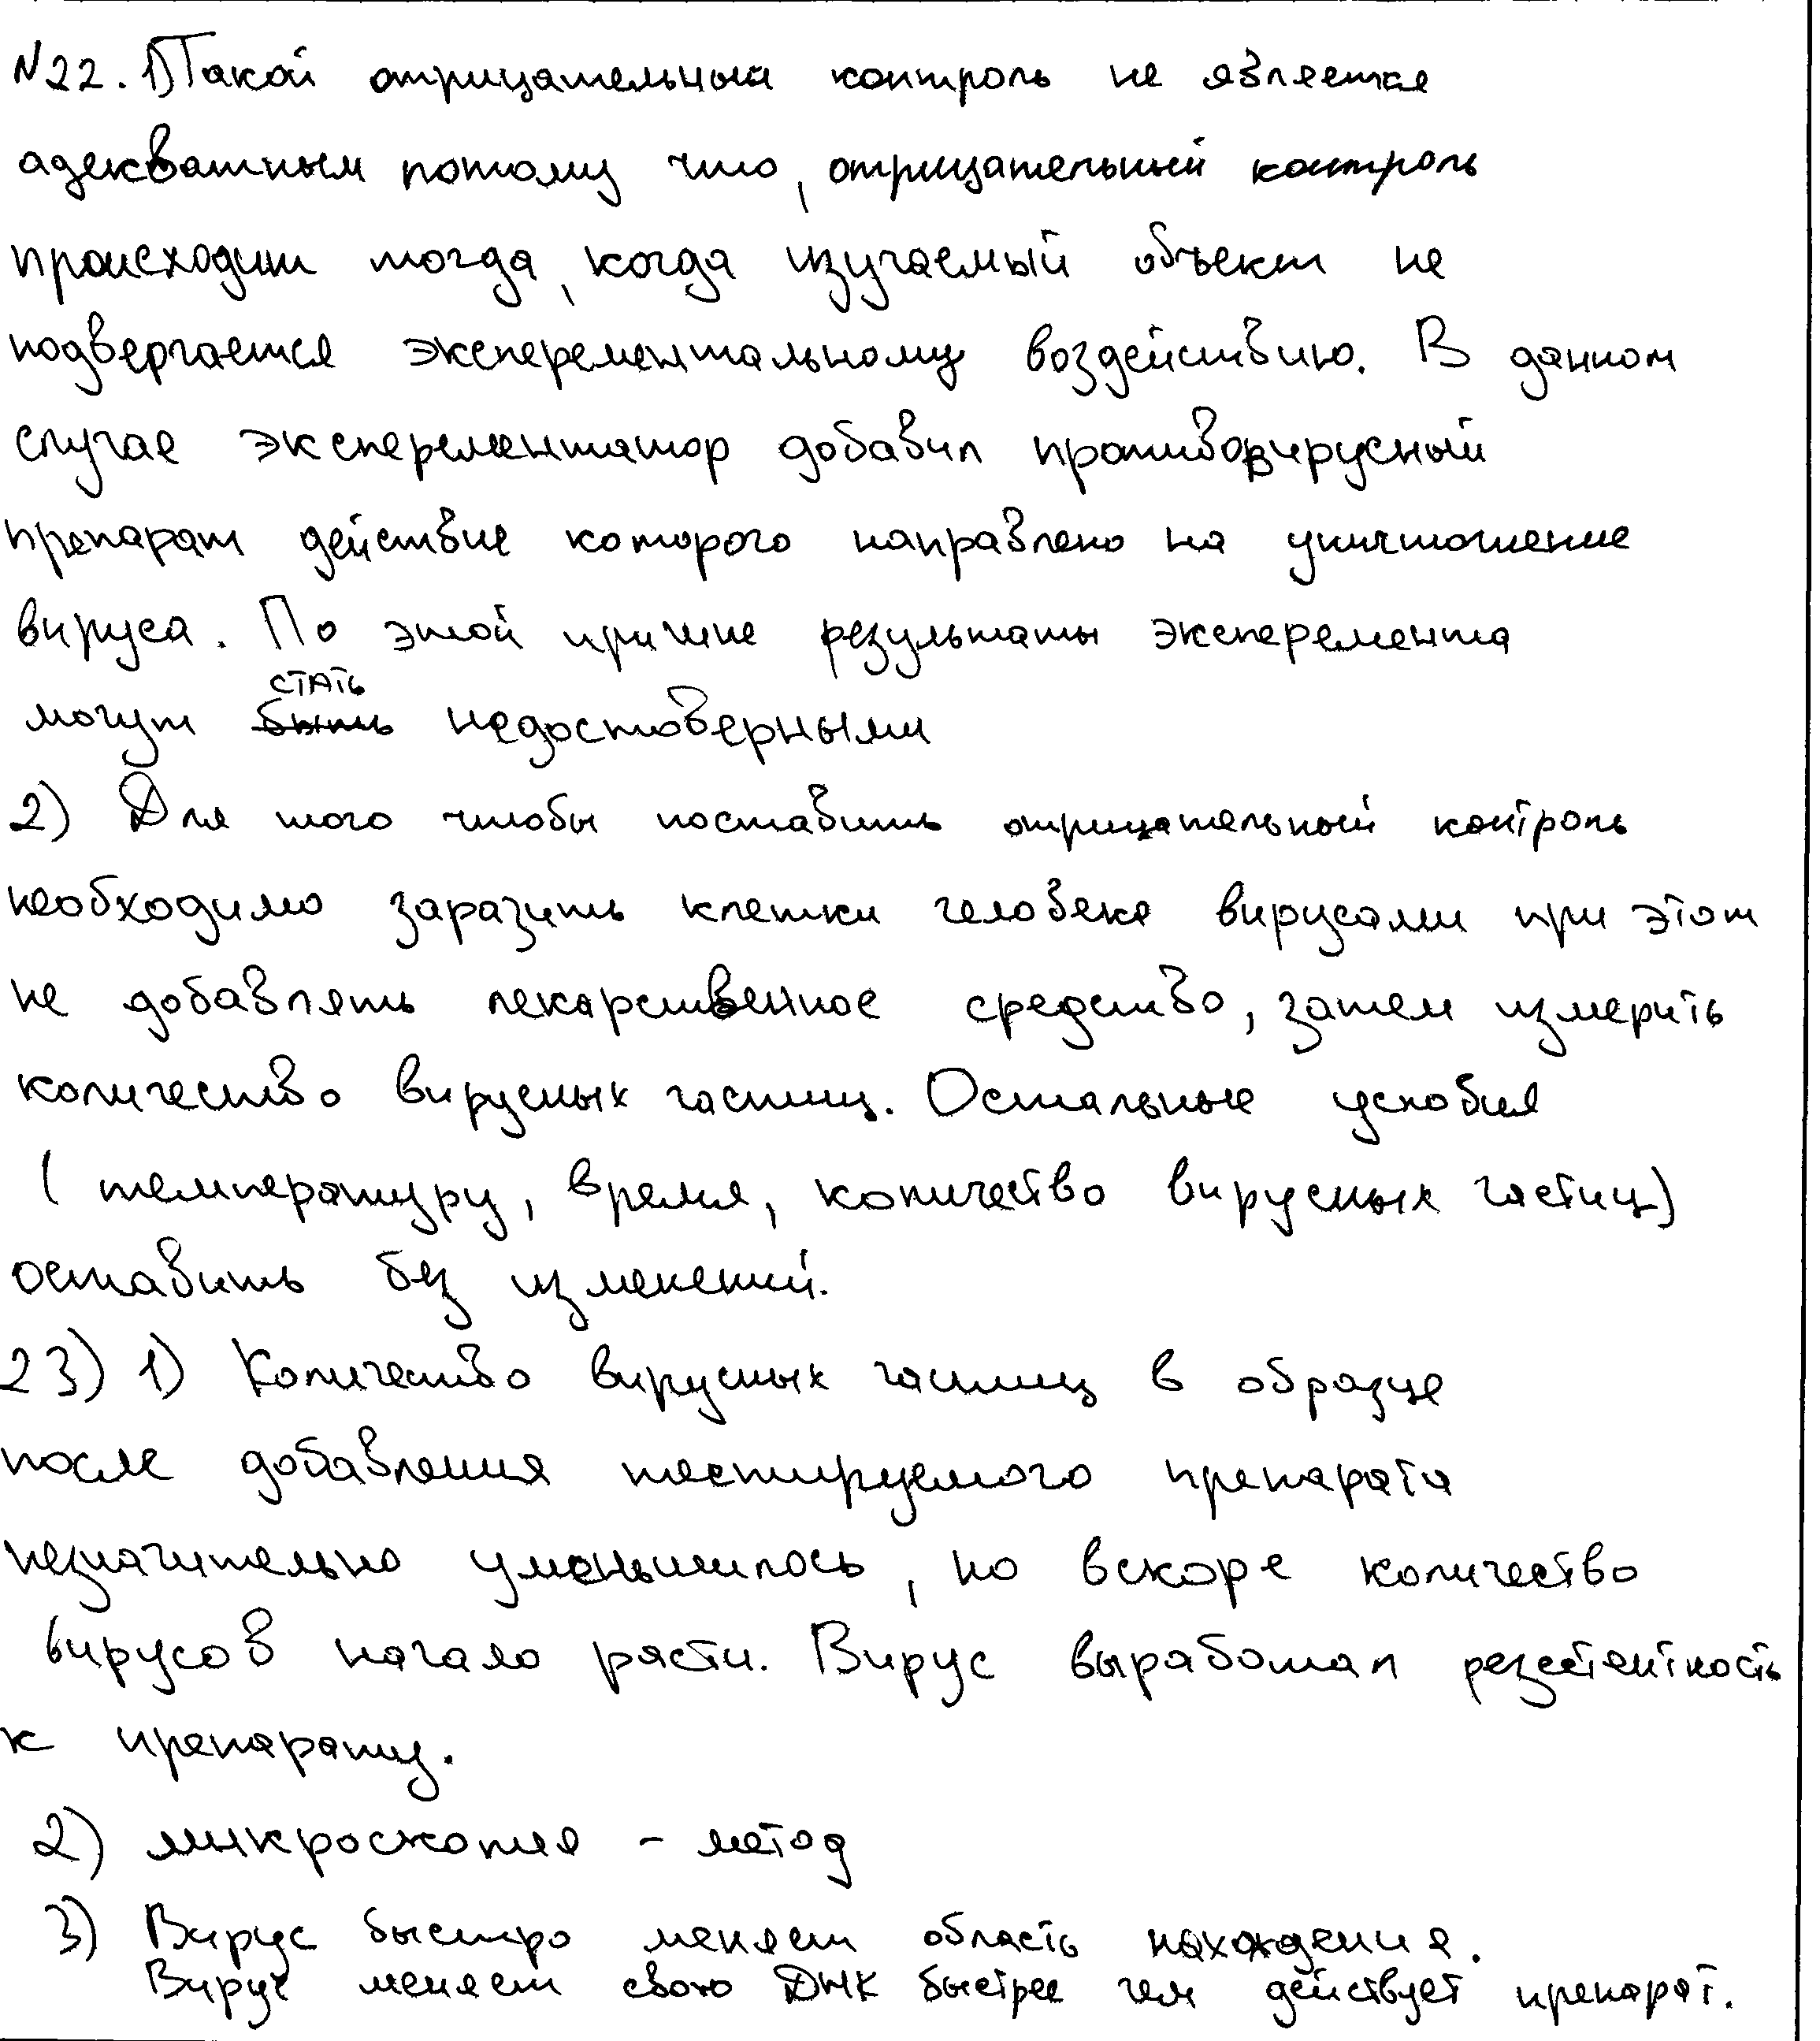 N22. 1) Такой отрицательный контроль не является
адекватным потому что, отрицательный контроль
происходит тогда, когда изучаемый объект не
подвергается эксперементальному воздействию. В данном
случае эксперементатор добавил противовирусный
препарат действие которого направлено на уничтошение
вируса. По этой причине результаты эксперемента
могут быть стать недостоверными
2) Для того чтобы поставить отрицательный контроль
необходимо заразить клетки человека вирусами при этом
не добавлять лекарственное средство, затем измерить
количество вирусных частиц. Остальные условия
( температуру, время, количество вирусных частиц)
оставить без изменений.
23) 1) Количество вирусных частиц в образце
после добавления тестируемого препарата
незначительно уменьшилось, но вскоре количество
вирусов начало расти. Вирус выработал резстентность
к препарату.
2) микроскопия - метод
3) Вирус быстро меняет область нахождения.
Вирус меняет свою ДНК быстрее чем действует препарат.